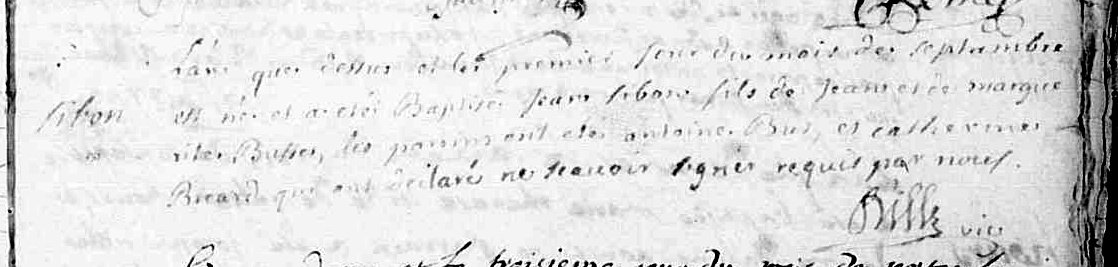 L'an que dessus et les premier jour du mois de septambre
sibon
est né et a etés Baptisé Jean sibon fils de Jean et de margue
rites Busses, les parrins ont etes antoines Bus, et catherines
Ricard qui ont déclarés ne scavoir signés requis par nous.
vic
et le troisieme jour du mois de